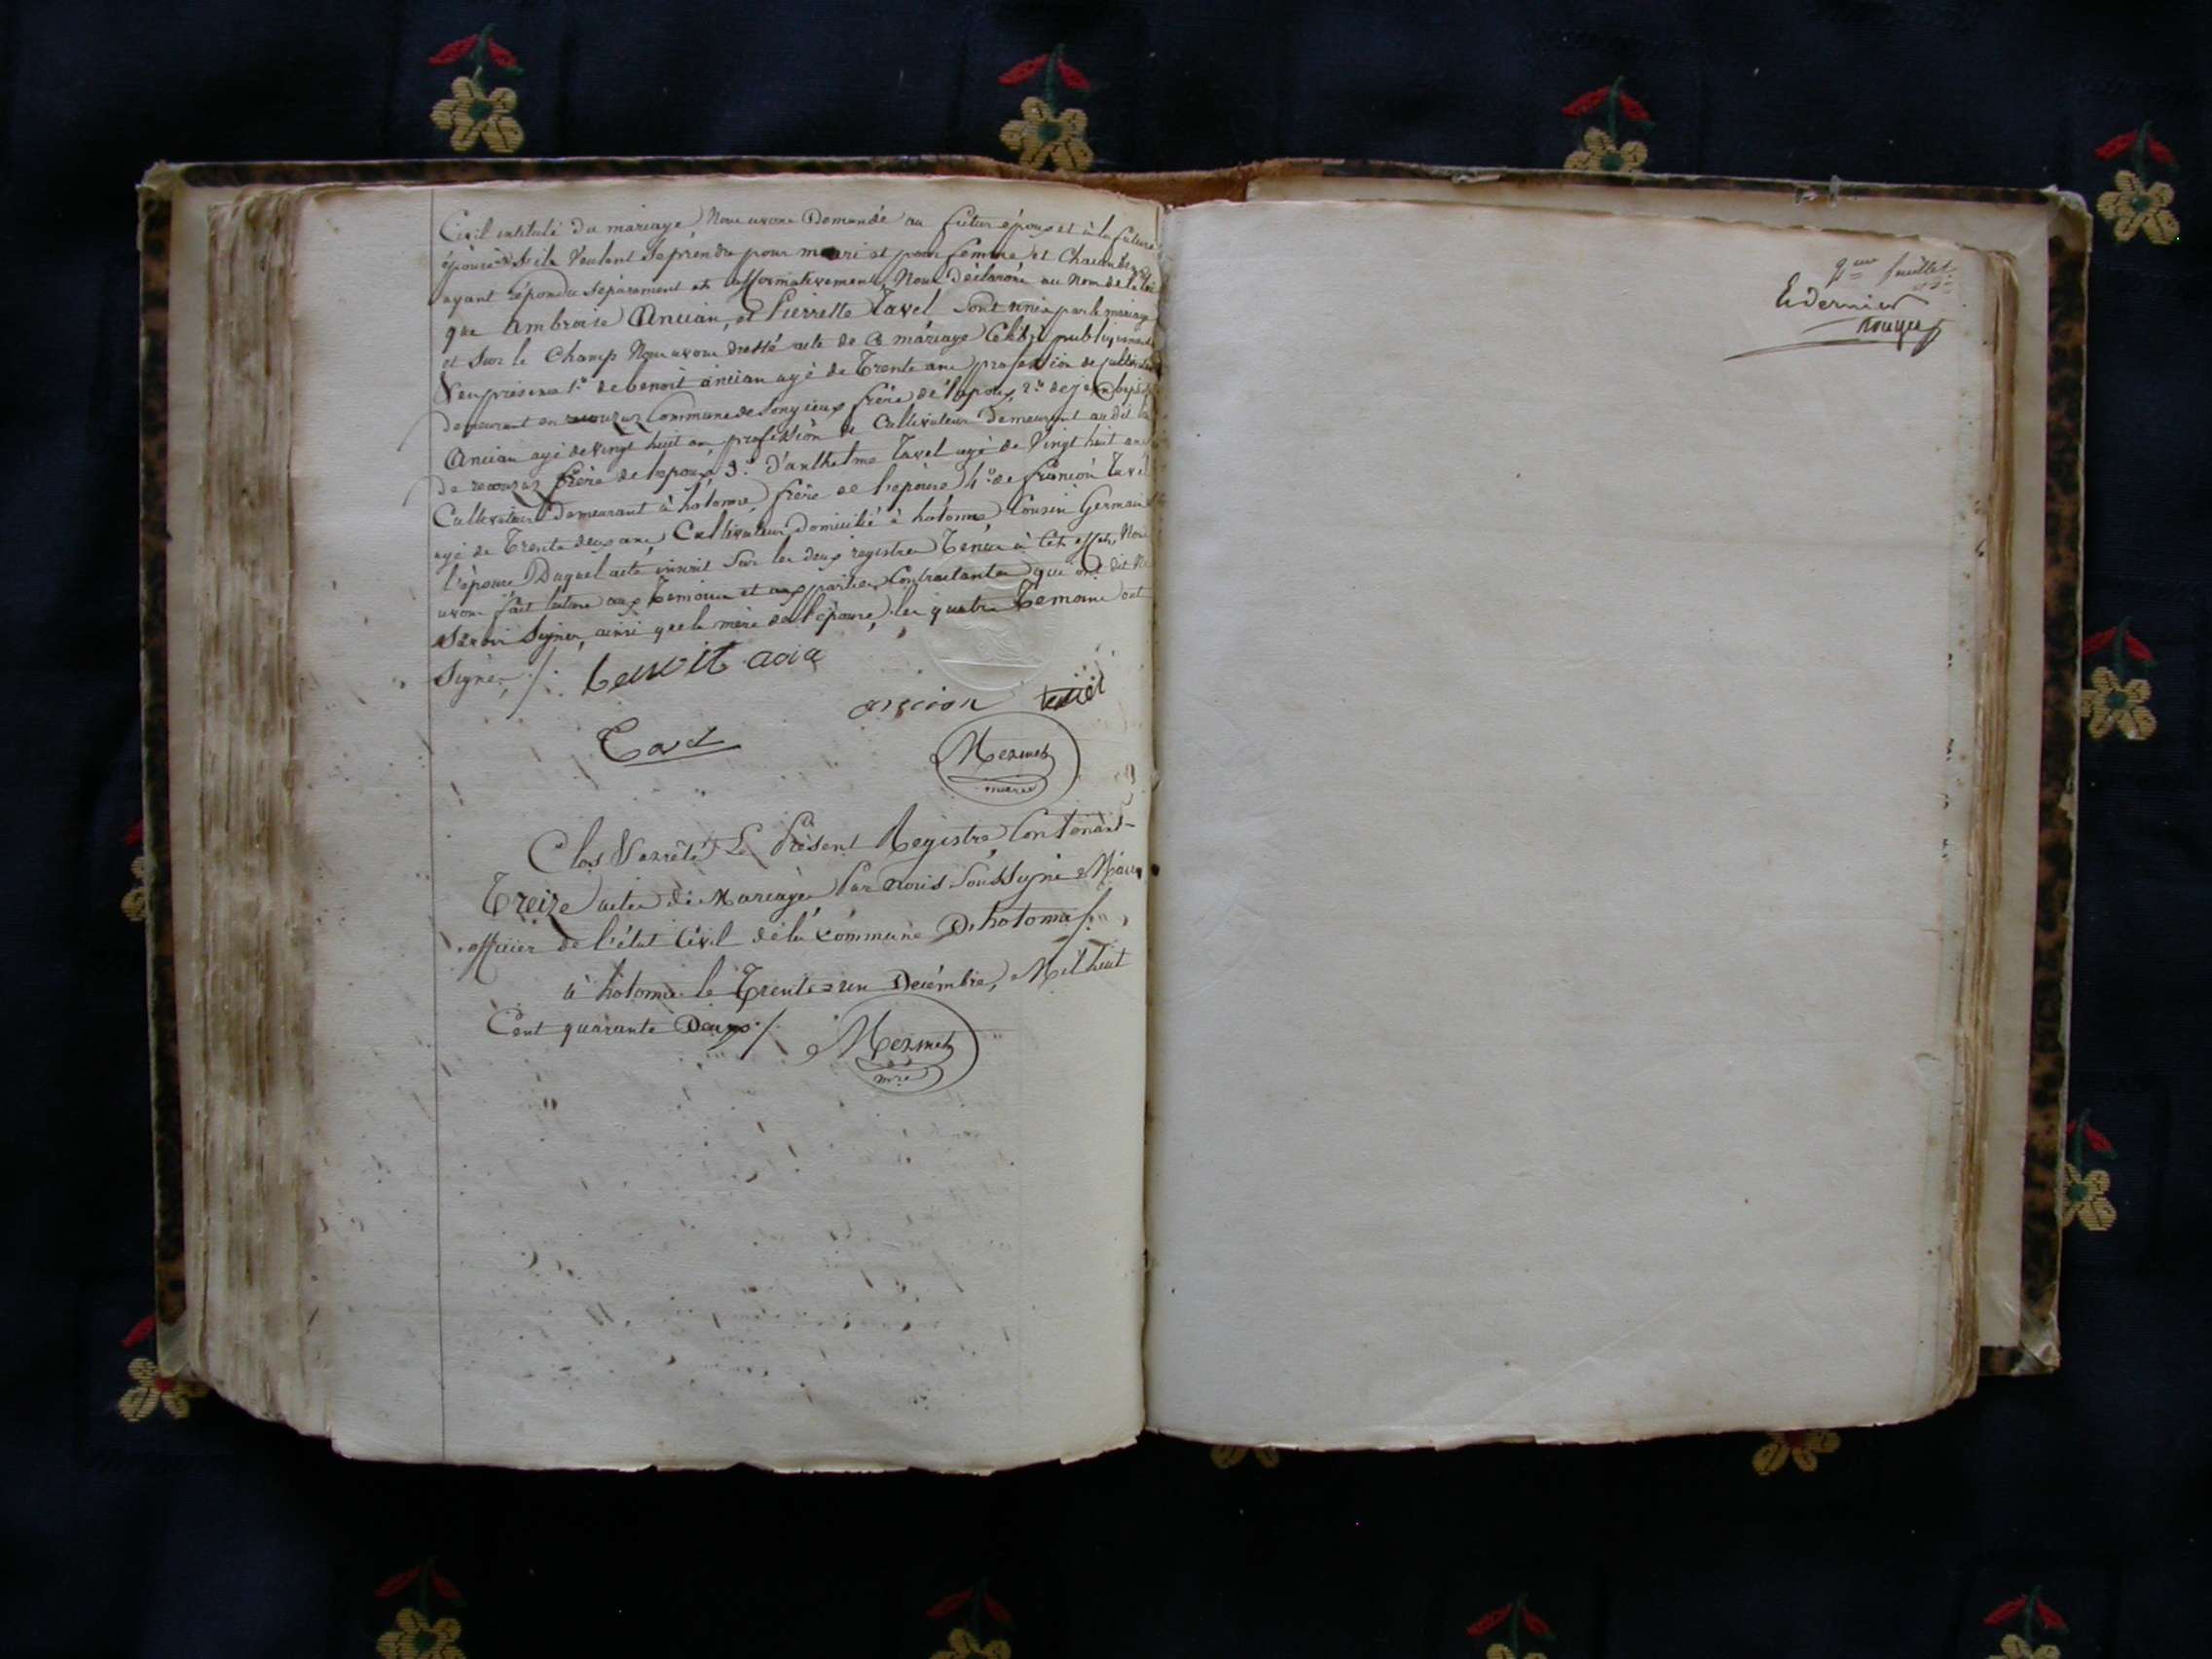 Civil intitulé du mariage, Nous avons Demandé au futur époux et à la future
épouse S'ils Veulent se prendre pour mari et pour femme, et Chacun
ayant répondu séparément et affirmativement, Nous Déclarons au Nom de la loi
que Ambroise Ancian, et Pierrette Tavel Sont unis par le mariage
et Sur le Champ Nous avons dressé acte de Ce mariage Célébré publiquement
en présence 1.º de benoit ancian agé de Trente ans profession de
demeurant en Commune de Songieux frère de l'époux, 2.º de jean
Ancian agé de vingt huit ans profession de Cultivateur Demeurant au dit lieu
de frère de l'époux, 3.º D'anthelme Tavel agé de Vingt huit ans
Cultivateur Demeurant à hotonne, frère de l'épouse, 4.º de françois Tavel
agé de Trente deux ans, Cultivateur Domicilié à hotonne Cousin Germain
l'épouse Duquel acte inscrit Sur les deux registres Tenus à Cet effet, Nous
avons fait lecture aux Temoins et aux parties Contractantes qui ont dit Ne
Savoir Signer, ainsi que la mère de l'épouse, les quatre Temoins ont
Signé, ./.
ancian
Mermet
maire
Clos & arrêté Le Présent Registre Contenant
Treize actes de Mariages Par nous Soussigné Maire
officier de l'état Civil de la Commune D'hotonne ./.
à hotonne le Trente=un Décembre, Mil huit
Cent quarante Deux ./. Mermet
mre
feuillet
dernier